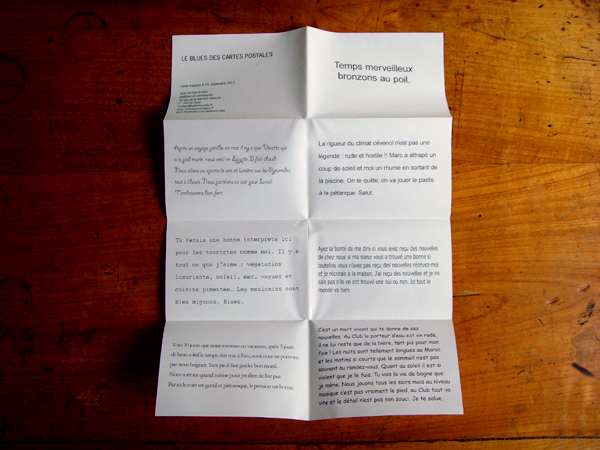 LE BLUES DES CARTES POSTALES
septembre 2010
Temps merveilleux
bronzons au poil.
Après un voyage pénible en mer, il n'y a que Vedette qui
a le pied marin, nous voici en Egypte. Il fait chaud.
Nous allons au spectacle son et lumière sur les Pyramides
tout à l'heure. Nous partirons ce soir pour Israël.
Tendresses bien fort.
La rigueur du climat cévenol n'est pas une
légende : rude et hostile !! Marc a attrapé un
coup de soleil et moi un rhume en sortant de
la piscine. On te quitte, on va jouer le pastis
à la pétanque. Salut.
Tu ferais une bonne interprète ici
pour les touristes comme moi. Il y a
tout ce que j'aime : végétation
luxuriante, soleil, mer, vagues et
cuisine pimentée. Les mexicains sont
bien mignons. Bises.
Ayez la bonté de me dire si vous avez reçu des nouvelles
de chez nous si ma soeur vous a trouvé une bonne si
toutefois vous n'avez pas reçu des nouvelles récrivez-moi
et je récrirais à la maison. J'ai reçu des nouvelles et je ne
sais pas s'ils en ont trouvé une oui ou non. Ici tout le
monde va bien.
Voici 10 jours que nous sommes en vacances, après 3 jours
de beau soleil le temps s'est mis à l'eau, aussi nous ne pouvons
pas nous baigner. Tant pis il faut garder bon moral.
Nous sortons quand même pour profiter de l'air pur.
Par ici le coin est gentil et pittoresque, la pension est bonne.
C'est un mort vivant qui te donne de ses
nouvelles. Au Club le porteur d'eau est en rade,
il ne lui reste que de la bière, tant pis pour mon
foie ! Les nuits sont tellement longues au Maroc
et les matins si courts que le sommeil n'est pas
souvent au rendez-vous. Quant au soleil il est si
violent que je le fuis. Tu vois la vie de bagne que
je mène. Nous jouons tous les soirs mais au niveau
musique c'est pas vraiment le pied, au Club tout va
vite et le détail n'est pas son souci. Je te salue.